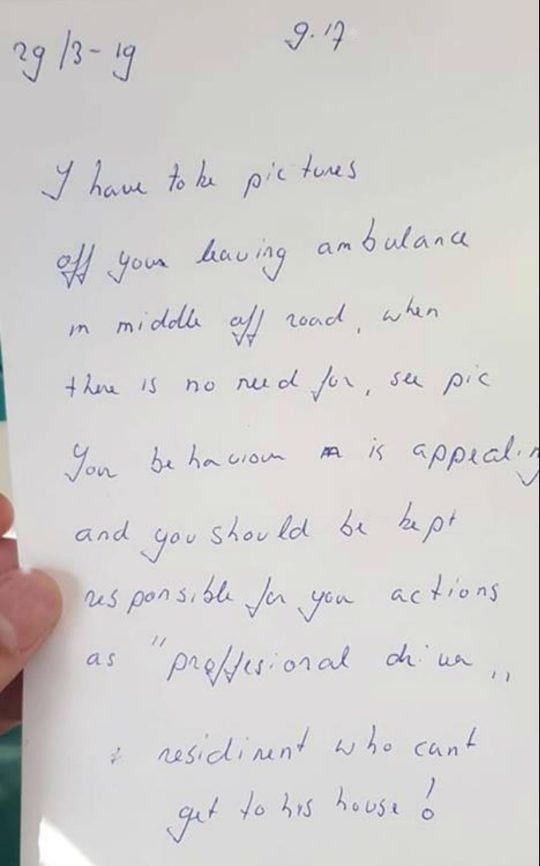 29/3-19 9.17
I have to ke pictures
off your leaving ambulance
in middle off road, when
there is no need for, see pic
You behaviour is appealing
and you should be kept
responsible for you actions
as "proffesional driver"
residinent who cant
get to his house!